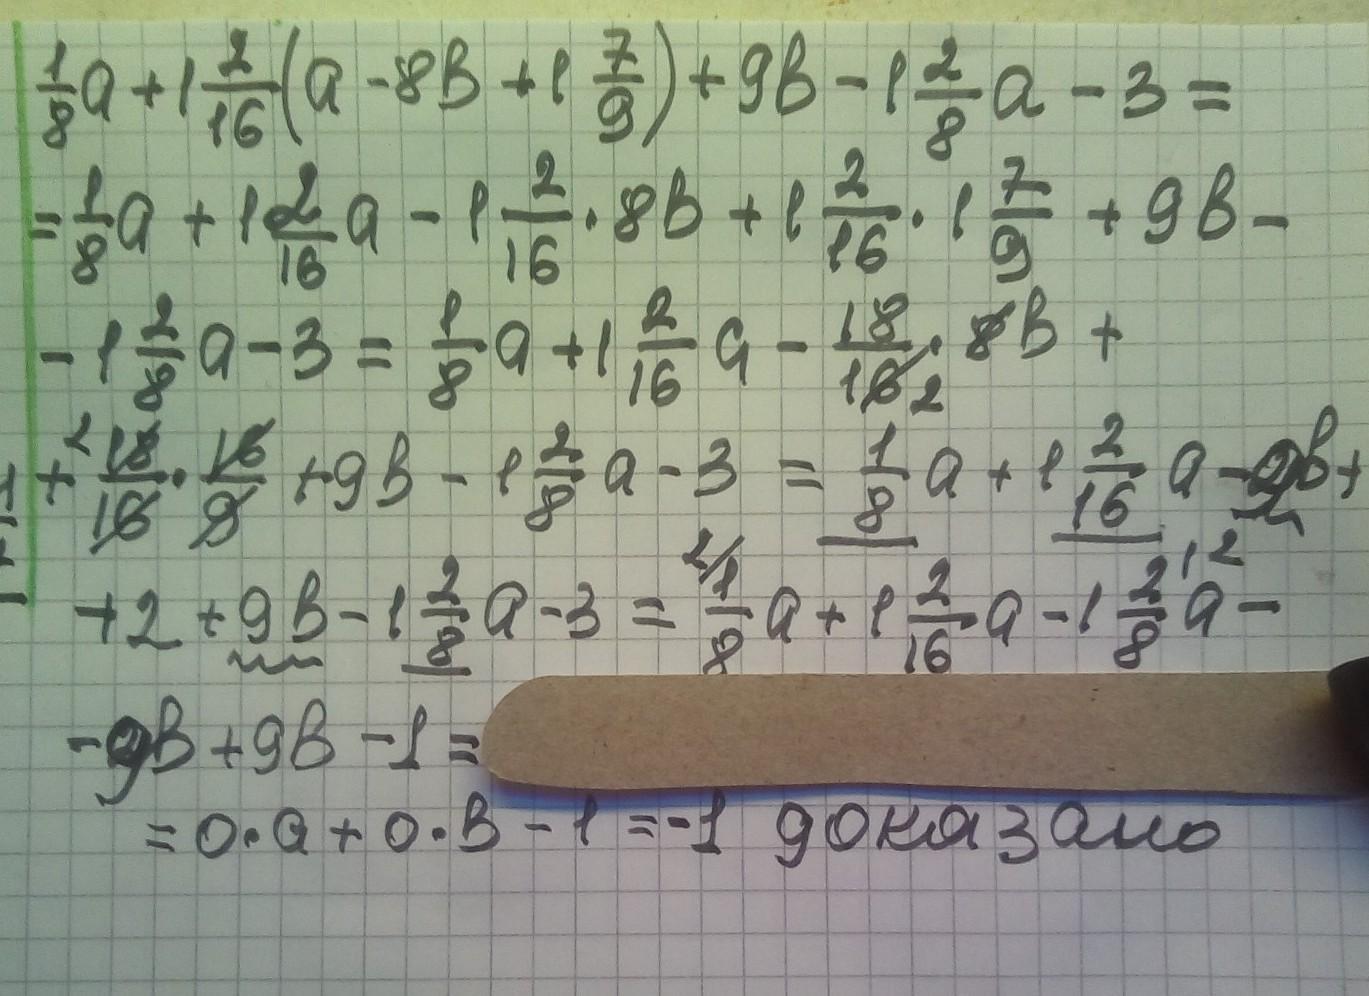 1/8 a + 1 2/16 (a - 8в + 1 7/9) + 9в - 1 2/8 a - 3 =
= 1/8 a + 1 2/16 a - 1 2/16 · 8в + 1 2/16 · 1 7/9 + 9в -
- 1 2/8 a - 3 = 1/8 a + 1 2/16 a - 18/16 2 · 8в +
+ 2 18/16 · 16/9 + 9в - 1 2/8 a - 3 = 1/8 a + 1 2/16 a - 9в +
+ 2 + 9в - 1 2/8 a - 3 = 2/ 1/8 a + 1 2/16 a - 1 2/8 /2 a -
- 9в + 9в - 1 =
= 0·a + 0·в - 1 = -1 доказано